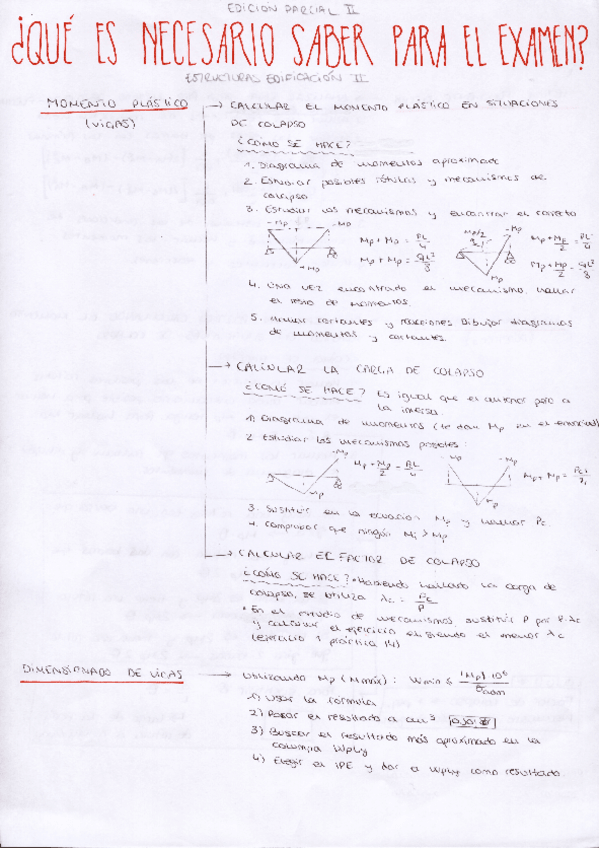 EDICIÓN PARCIAL II
¿QUÉ ES NECESARIO SABER PARA EL EXAMEN?
ESTRUCTURAS EDIFICACIÓN II
MOMENTO PLÁSTICO
(VIGAS)
→ CALCULAR EL MOMENTO PLÁSTICO EN SITUACIONES
DE COLAPSO
¿CÓMO SE HACE?
1. Diagrama de momentos aproximado
2. Estudiar posibles rótulas y mecanismos de
colapso
3. Estudiar los mecanismos y encontrar el correcto
-Mp -Mp
+Mp
Mp + Mp = PL/4
Mp + Mp = qL²/8
Mp/2 -Mp
Mp + Mp/2 = PL/4
Mp + Mp/2 = qL²/8
4. Una vez encontrado el mecanismo, hallar
el resto de momentos.
5. Hallar cortantes y reacciones. Dibujar diagramas
de momentos y cortantes.
→ CALCULAR LA CARGA DE COLAPSO
¿CÓMO SE HACE? Es igual que el anterior pero a
la inversa.
1) Diagrama de momentos (te dan Mp en el enunciado)
2. Estudiar los mecanismos posibles:
-Mp
+Mp
Mp + Mp/2 = PL/4
-Mp -Mp
+Mp
Mp + Mp =
3. Sustituir en la ecuación Mp y hallar Pc.
4. Comprobar que ningún Mi > Mp
→ CALCULAR EL FACTOR DE COLAPSO
¿CÓMO SE HACE? • Habiendo hallado la carga de
colapso, se utiliza λc = Pc/P
• En el estudio de mecanismos, sustituir P por P·λc
y calcular el ejercicio eligiendo el menor λc
(ejercicio 1 práctica 14)
DIMENSIONADO DE VIGAS
→ Utilizando Mp (Mmáx): Wmin ≤ |Mp| 10⁶/σadm
1) Usar la fórmula
2) Pasar el resultado a cm³
3) Buscar el resultado más aproximado en la
columna Wply
4) Elegir el IPE y dar a Wply como resultado.